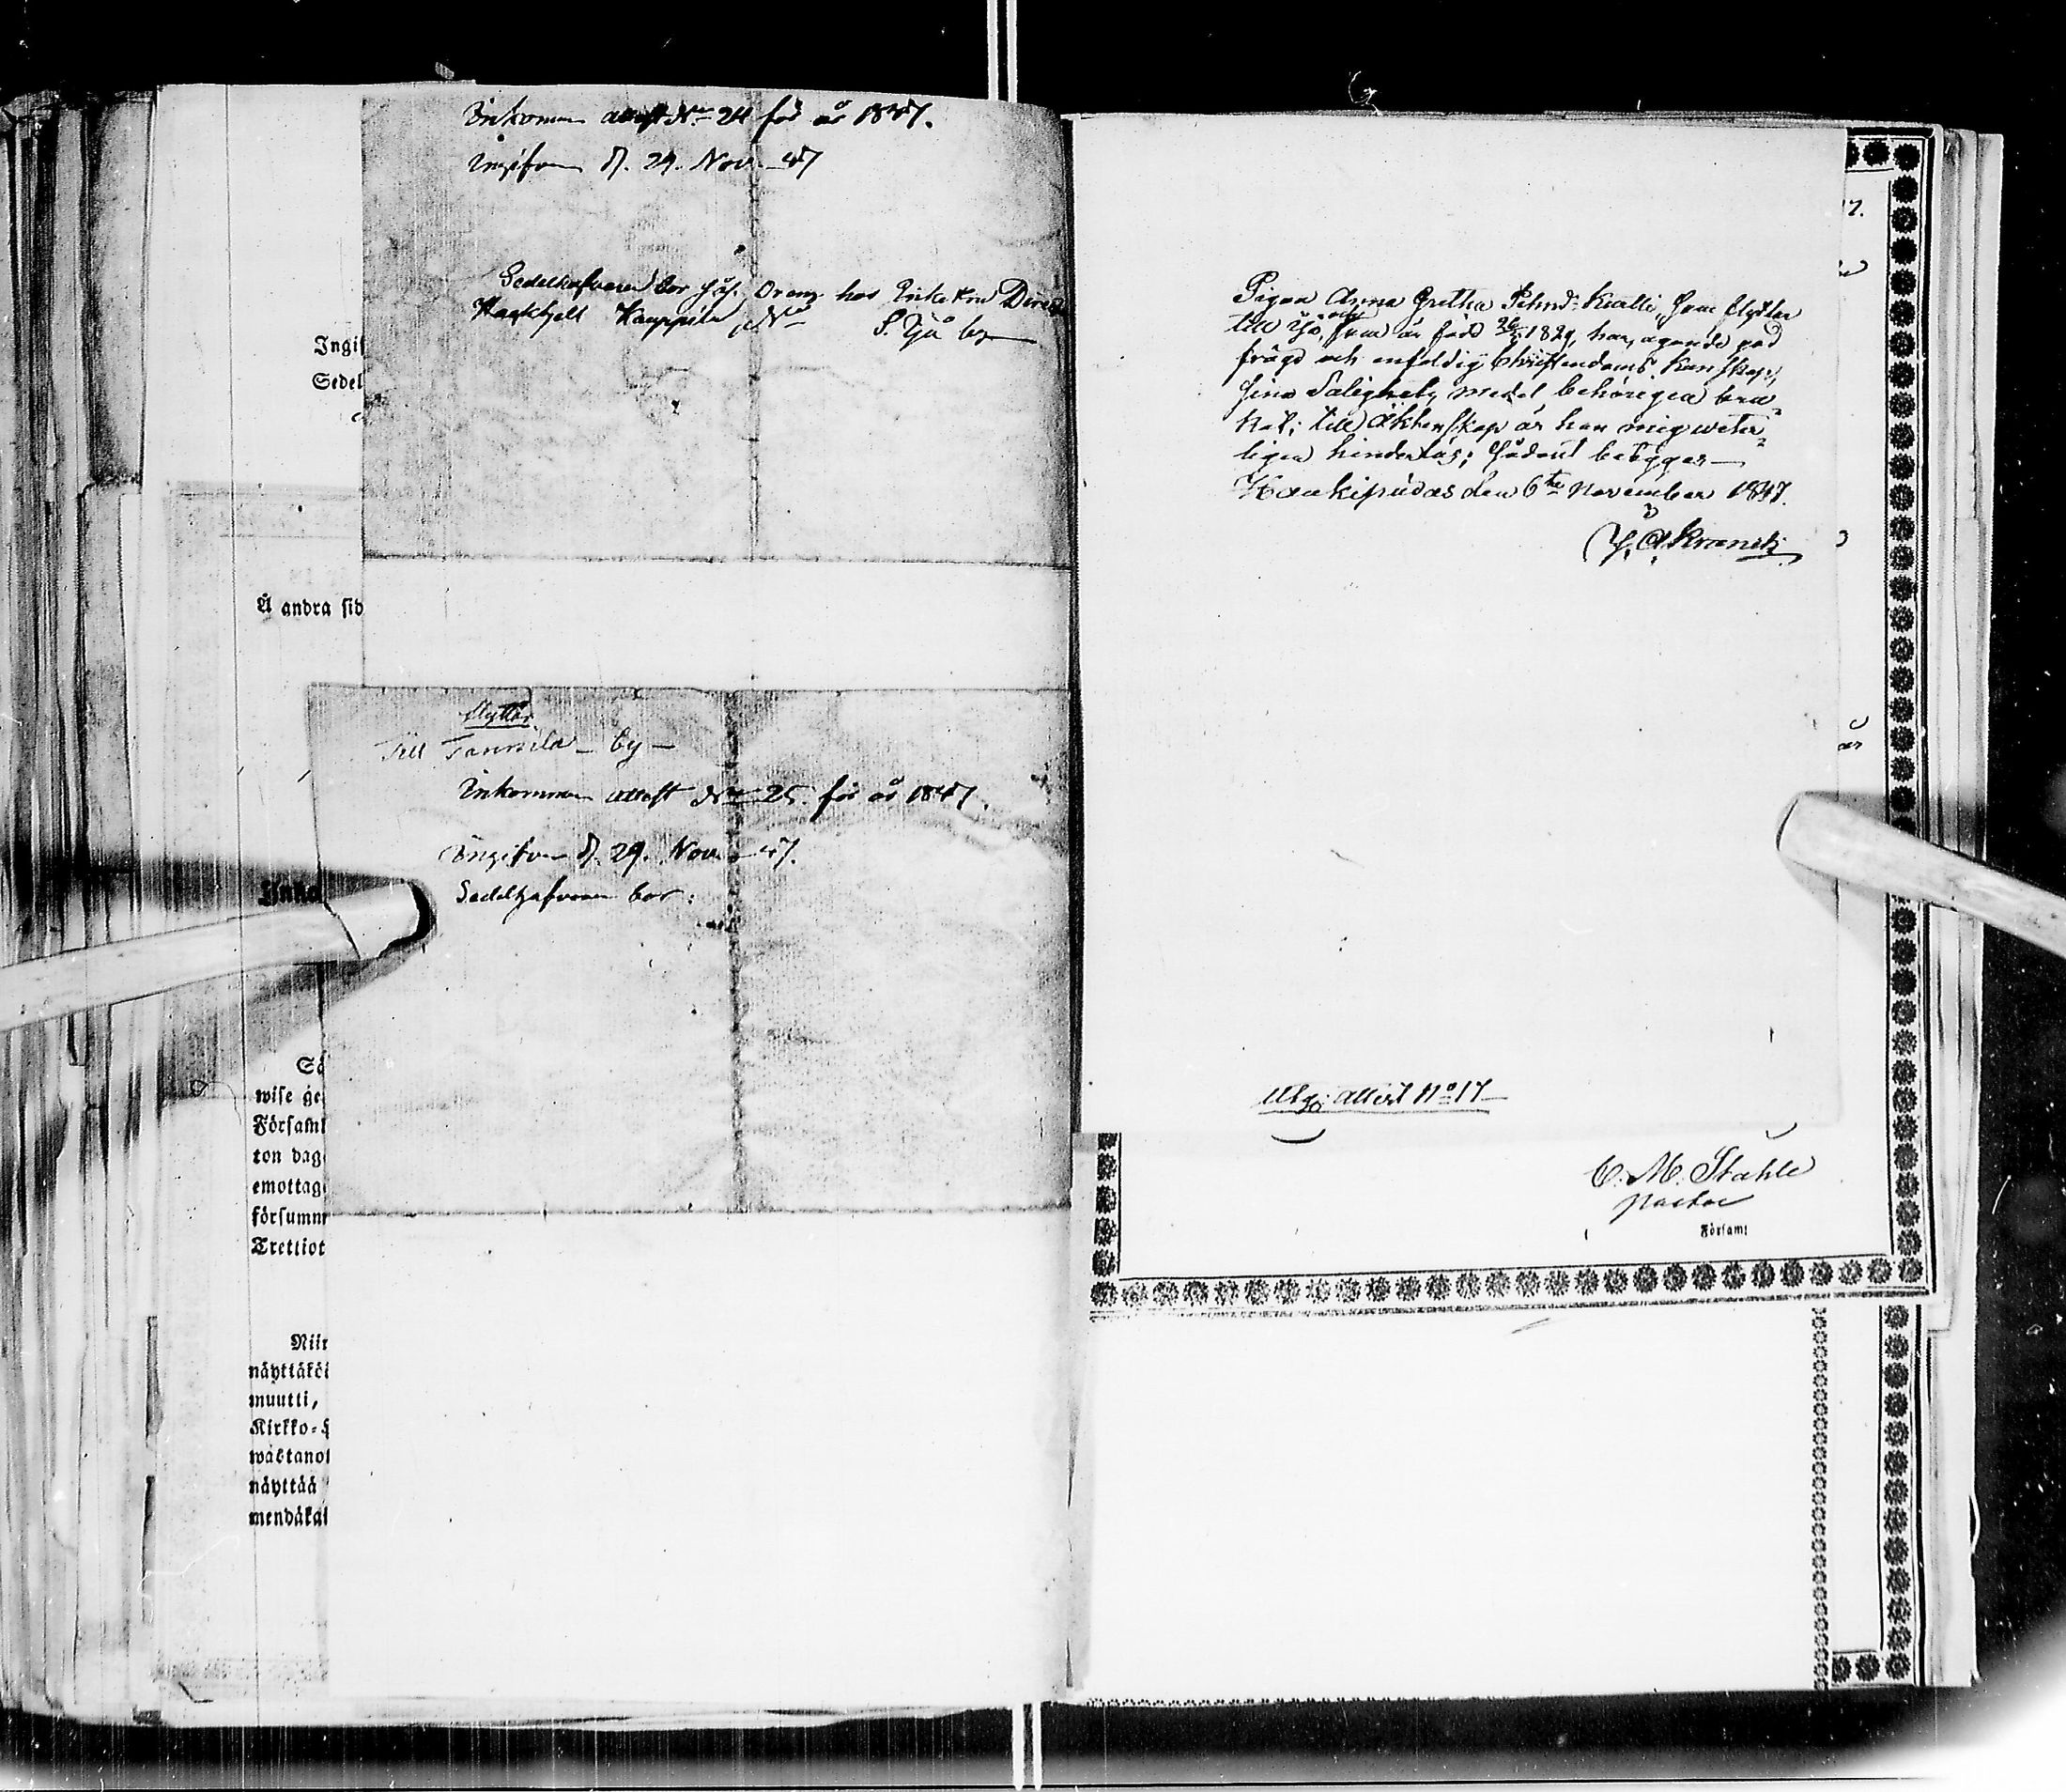 Inkommen attest No 24 för år 1847.
Ingifven d. 29. Nov. -47
Sedelhafvaren bor hos
Kauppila No S. Ijå by
Ingif
Sedel
Å andra sid
flyttar
Till Tannila by
Inkommen attest No 25. för år 1847.
Ingifven d. 29. Nov. -47.
Sedelhafvaren bor:
Inko
Så
wise ge
Församl
ton dag
emottag
försumm
Trettiot
Niir
näyttäköi
muutti,
Kirkko-
wastanot
näyttää
mendäkäi
Pigan Anna Gretha Kualli, som flyttar
till Ijo, som är född 1829, har, ägande god
frägd och enfaldig Christendoms kunskap,
sina Salighets medel behörigen bru-
kat; till Äktenskap är hon mig veter-
ligen hinderlös; sådant betygar
Haukipudas den 6te November 1847.
Utg: attest No 17
C. M. Stahle
Pastor
Församl